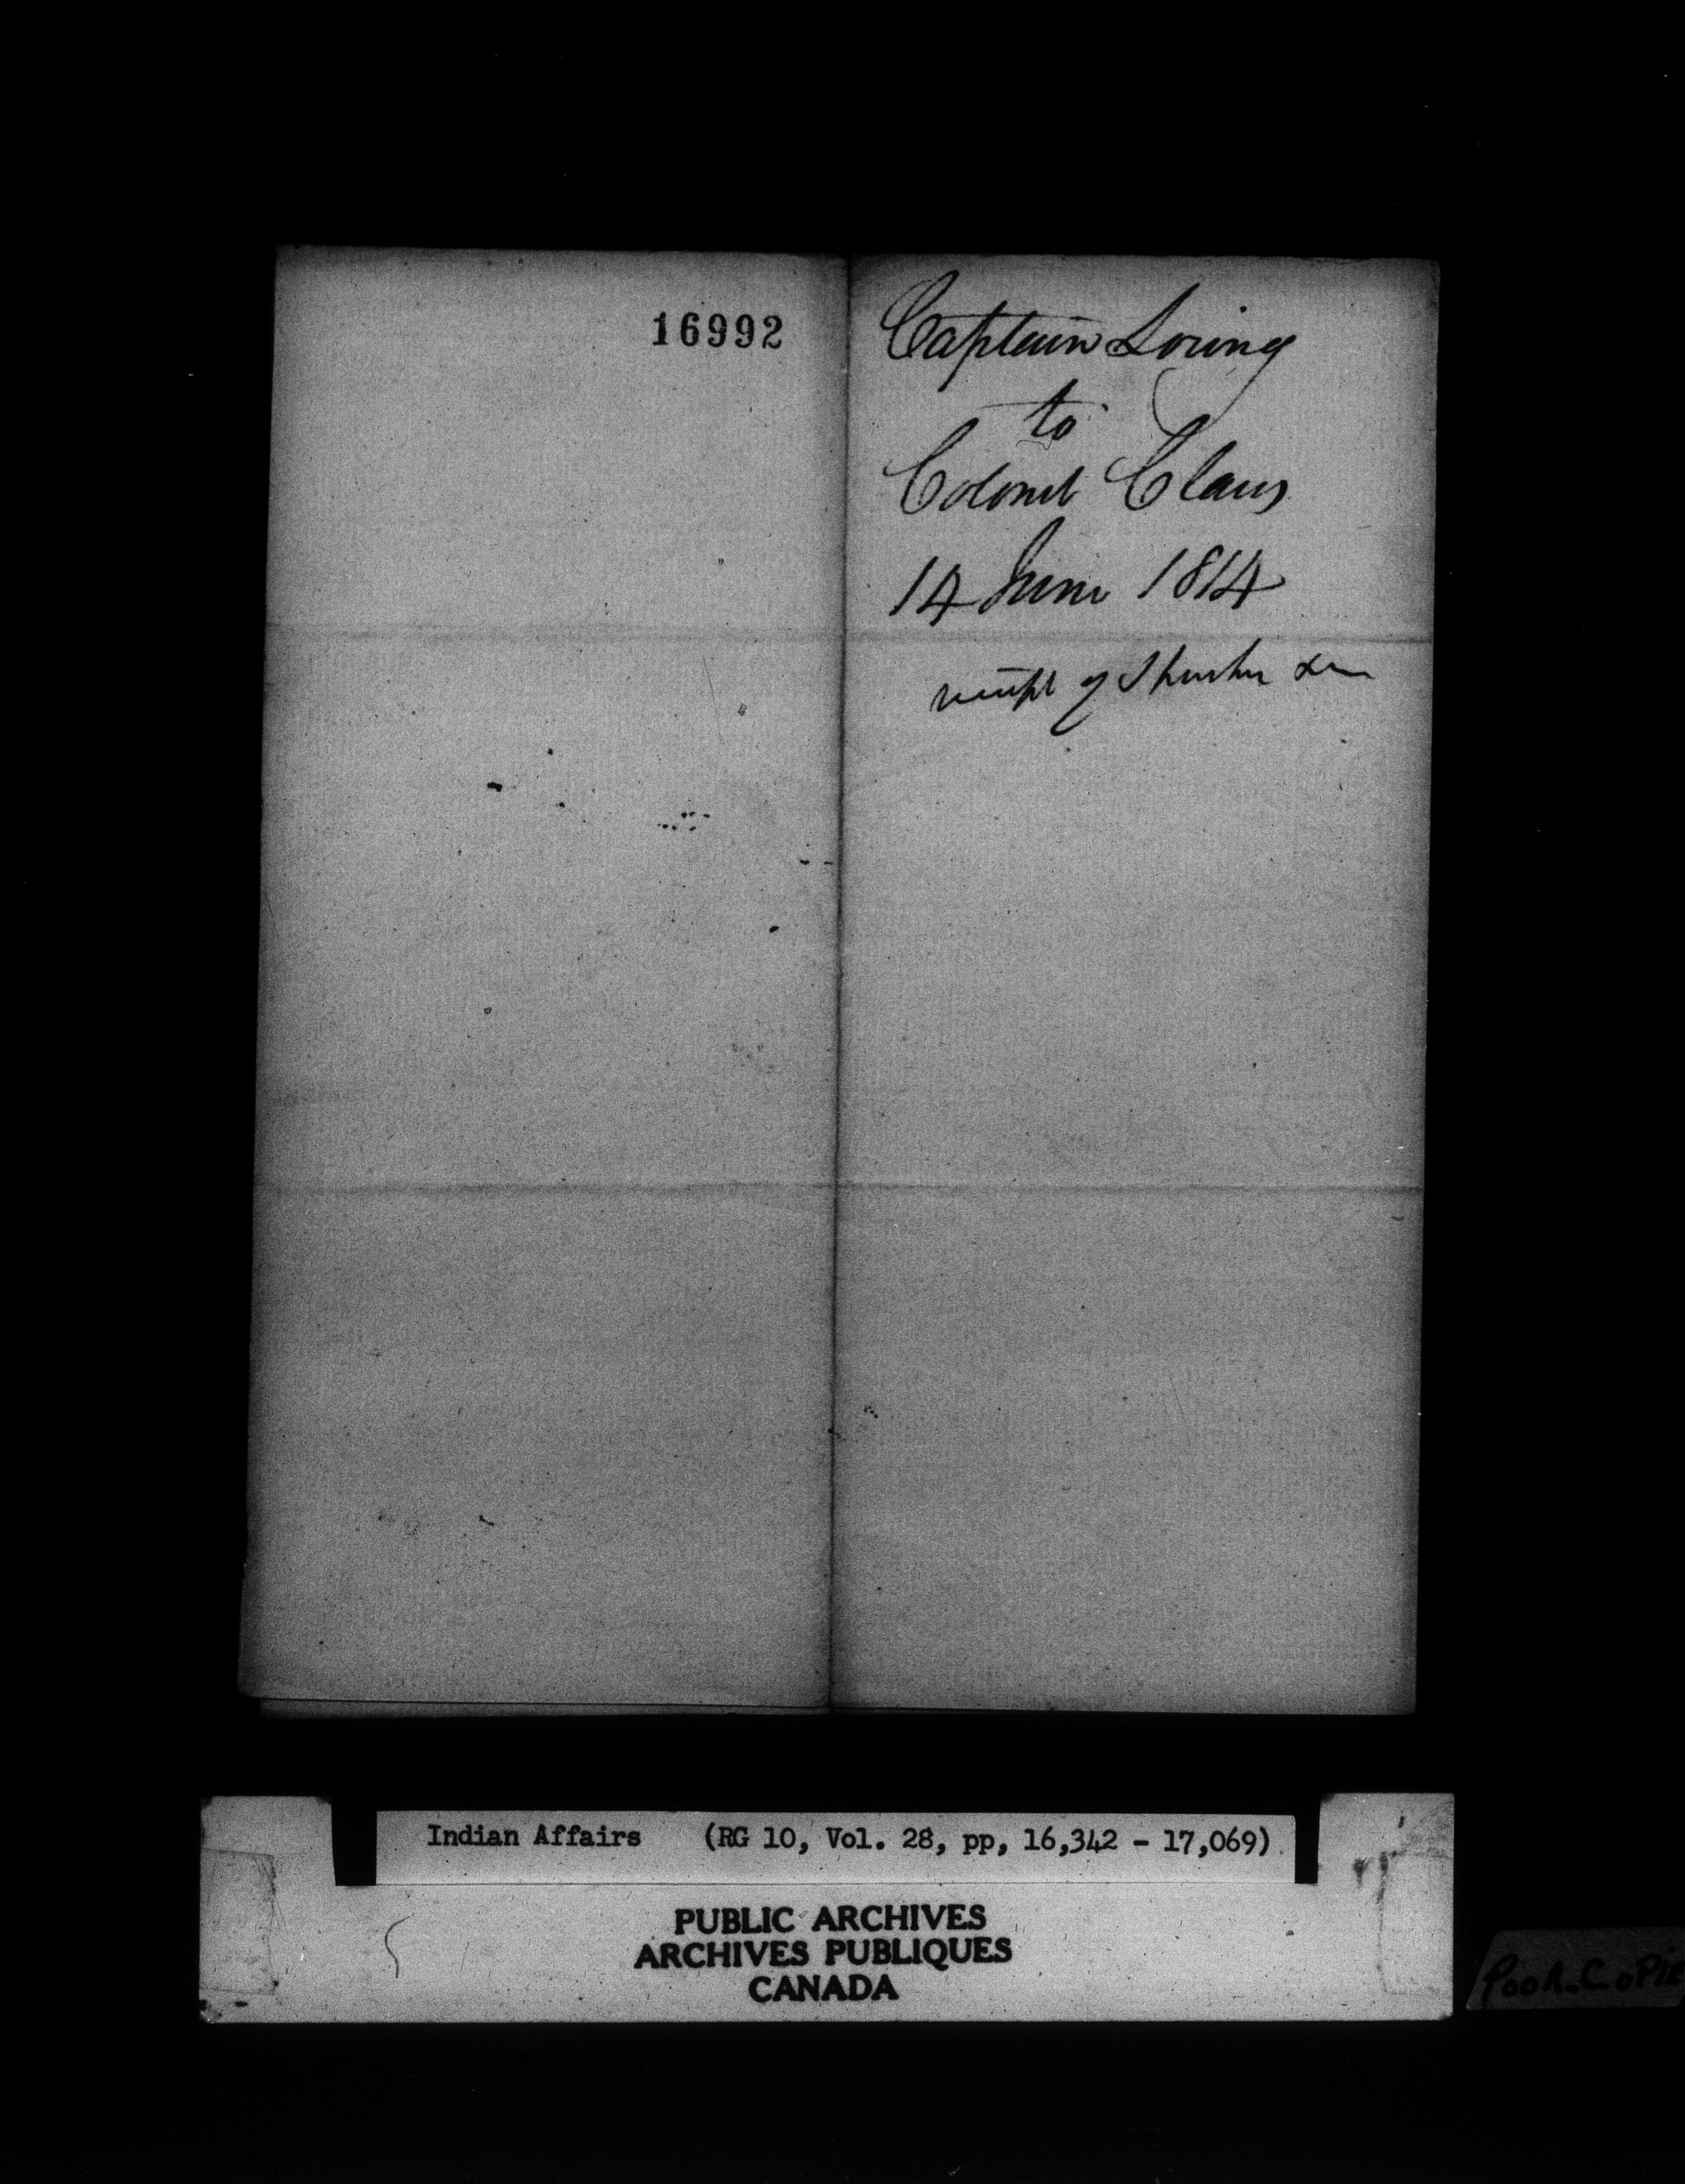 16992
Captain Loring
to
Colonel Claus
14 June 1814
receipt of &c
Indian Affairs (RG 10, Vol. 28, pp, 16,342 - 17,069)
PUBLIC ARCHIVES
ARCHIVES PUBLIQUES
CANADA
POOR COPIE